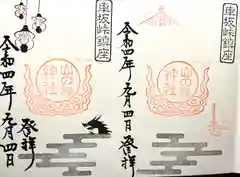 車坂峠鎮座
山の神
神社
令和四年
元月四日
登拝
車坂峠鎮座
山の神
神社
令和四年
元月四日
登拝